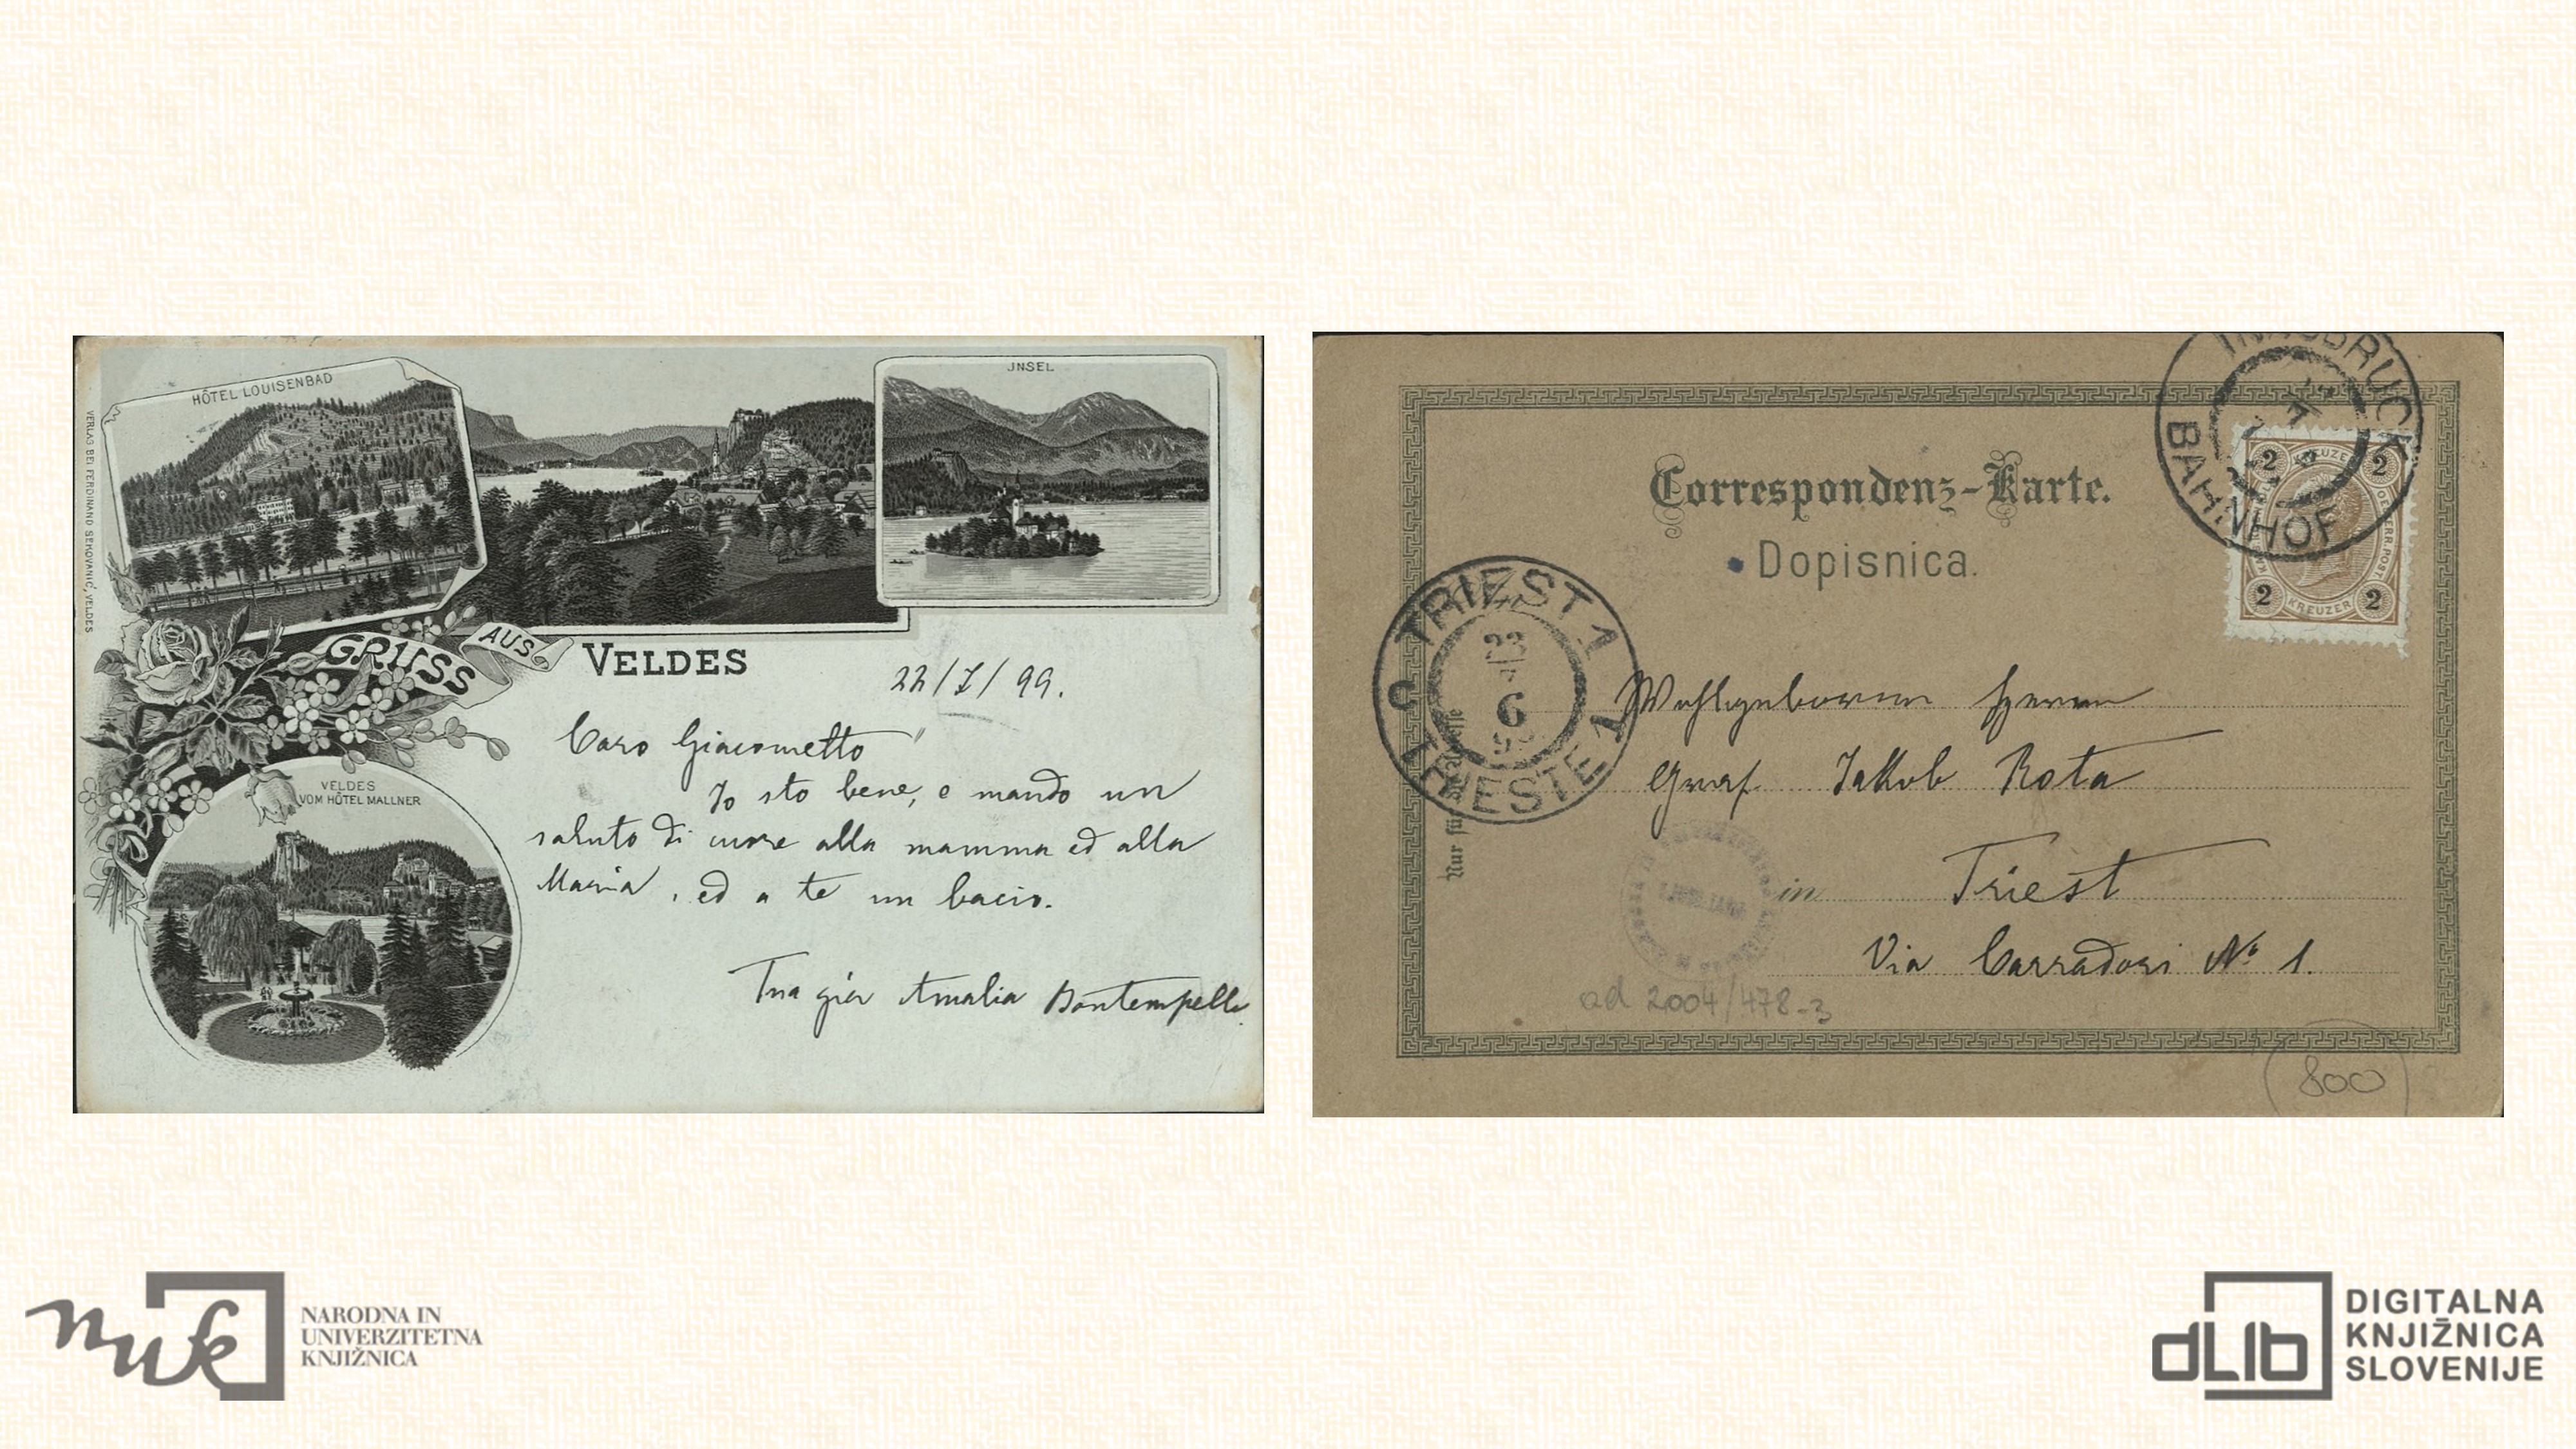 HÔTEL LOUISENBAD
JNSEL
VERLAG BEI FERDINAND SEKOVANIČ, VELDES
GRUSS AUS VELDES
22/7/99.
Caro Giacometto
Io sto bene, e mando un
saluto di cuore alla mamma ed alla
Maria, ed a te un bacio.
Tua zia Amalia Bontempelli
VELDES
VOM HÔTEL MALLNER
INNSBRUCK
BAHNHOF
2 KREUZER 2
2 KREUZER 2
Correspondenz-Karte.
Dopisnica.
TRIEST 1
23
7
6
TRIESTE 1
Nur für
Wohlgeboren Herrn
Graf Jakob Rota
in Triest
Via Corradori No 1.
ad 2004/478-3
800
nuk
NARODNA IN
UNIVERZITETNA
KNJIŽNICA
dLib
DIGITALNA
KNJIŽNICA
SLOVENIJE